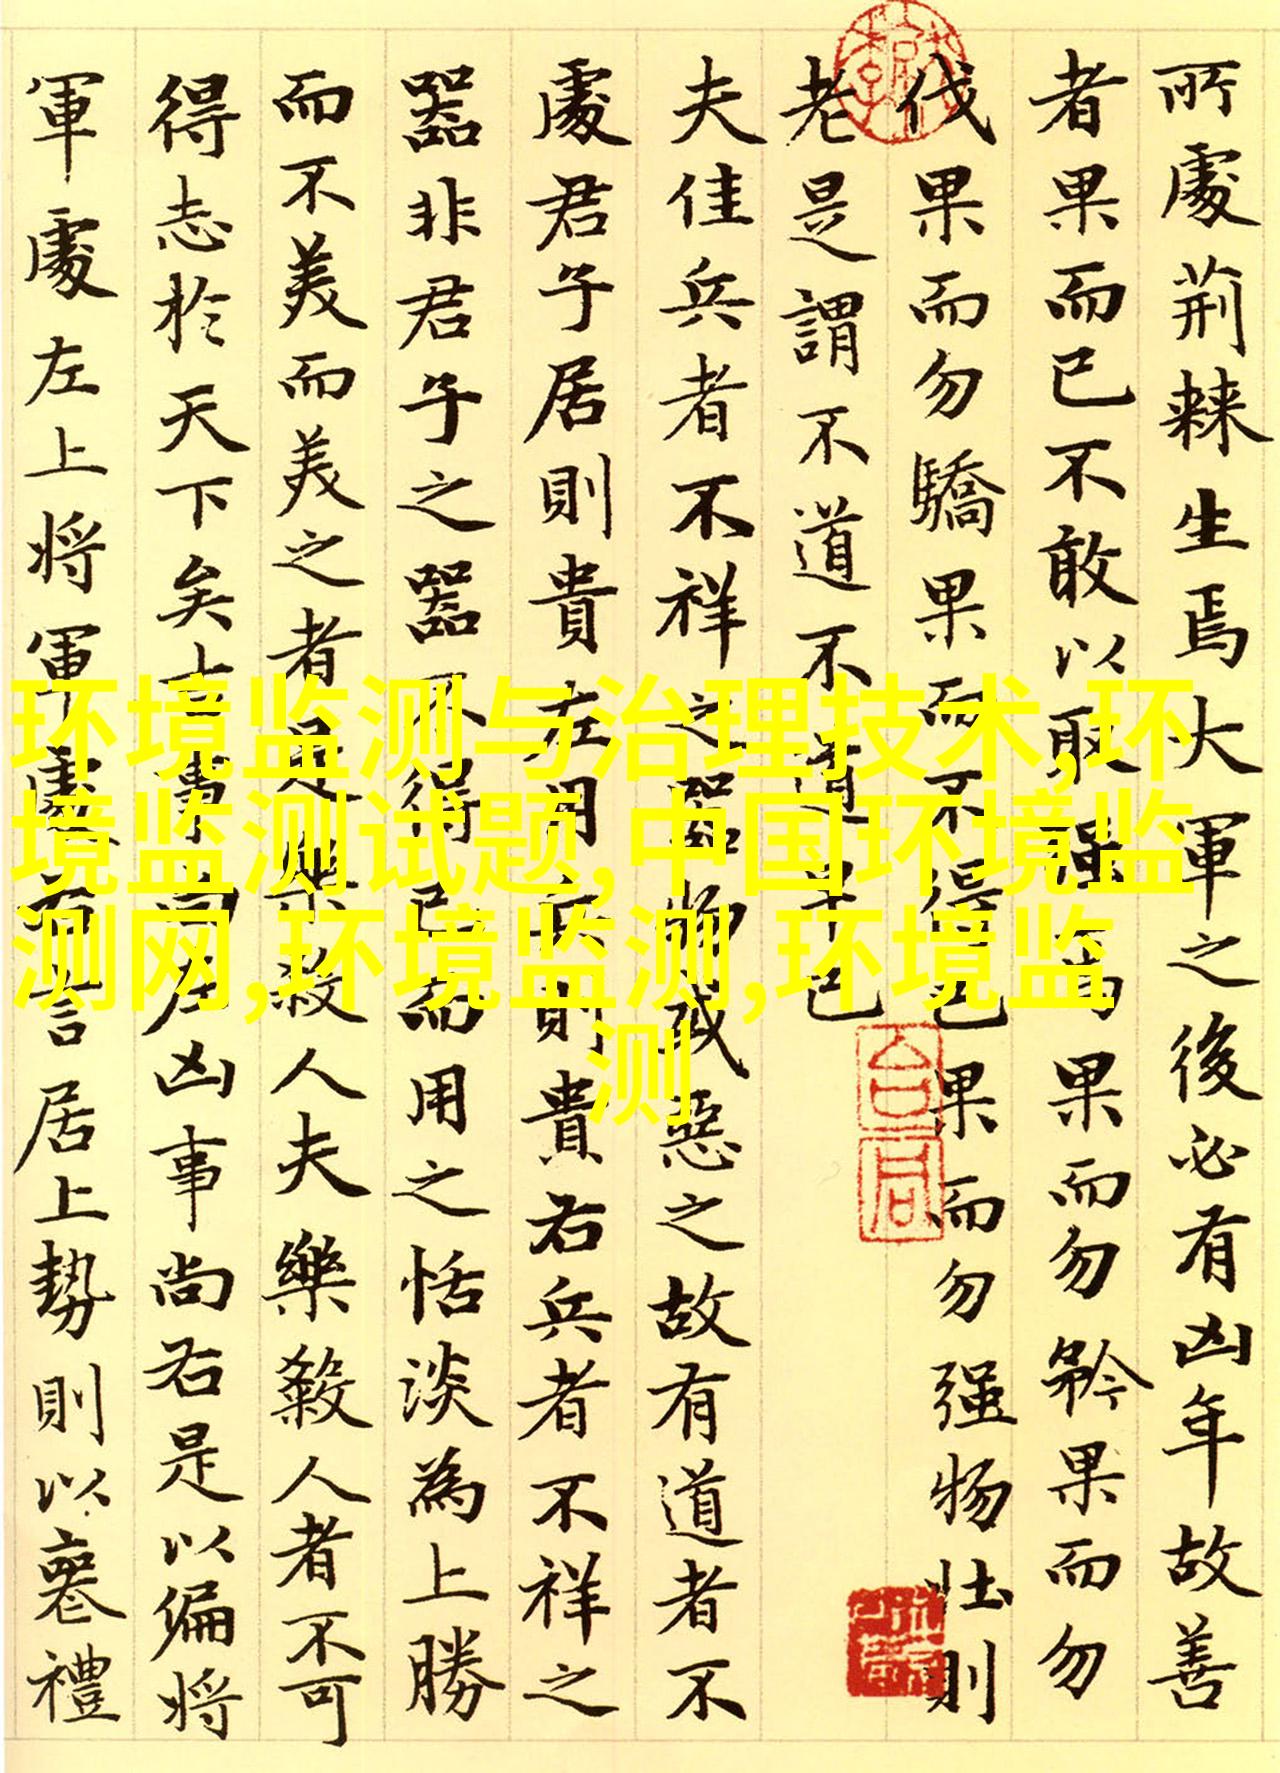 所處荊棘生焉大軍之後必有凶年故善
者果而已不敢以取强焉果而勿矜果而勿
伐果而勿驕果而不得已果而勿强物壮則
老是謂不道不道早已
夫佳兵者不祥之器物或惡之故有道者不
處君子居則貴左用兵則貴右兵者不祥之
器非君子之器不得已而用之恬淡為上勝
而不美而美之者是樂殺人夫樂殺人者不可
得志於天下矣吉事尚左凶事尚右是以偏將
軍處左上將軍處右言居上勢則以喪禮
环境监测与治理技术,环
境监测试题,中国环境监
测网,环境监测,环境监
测